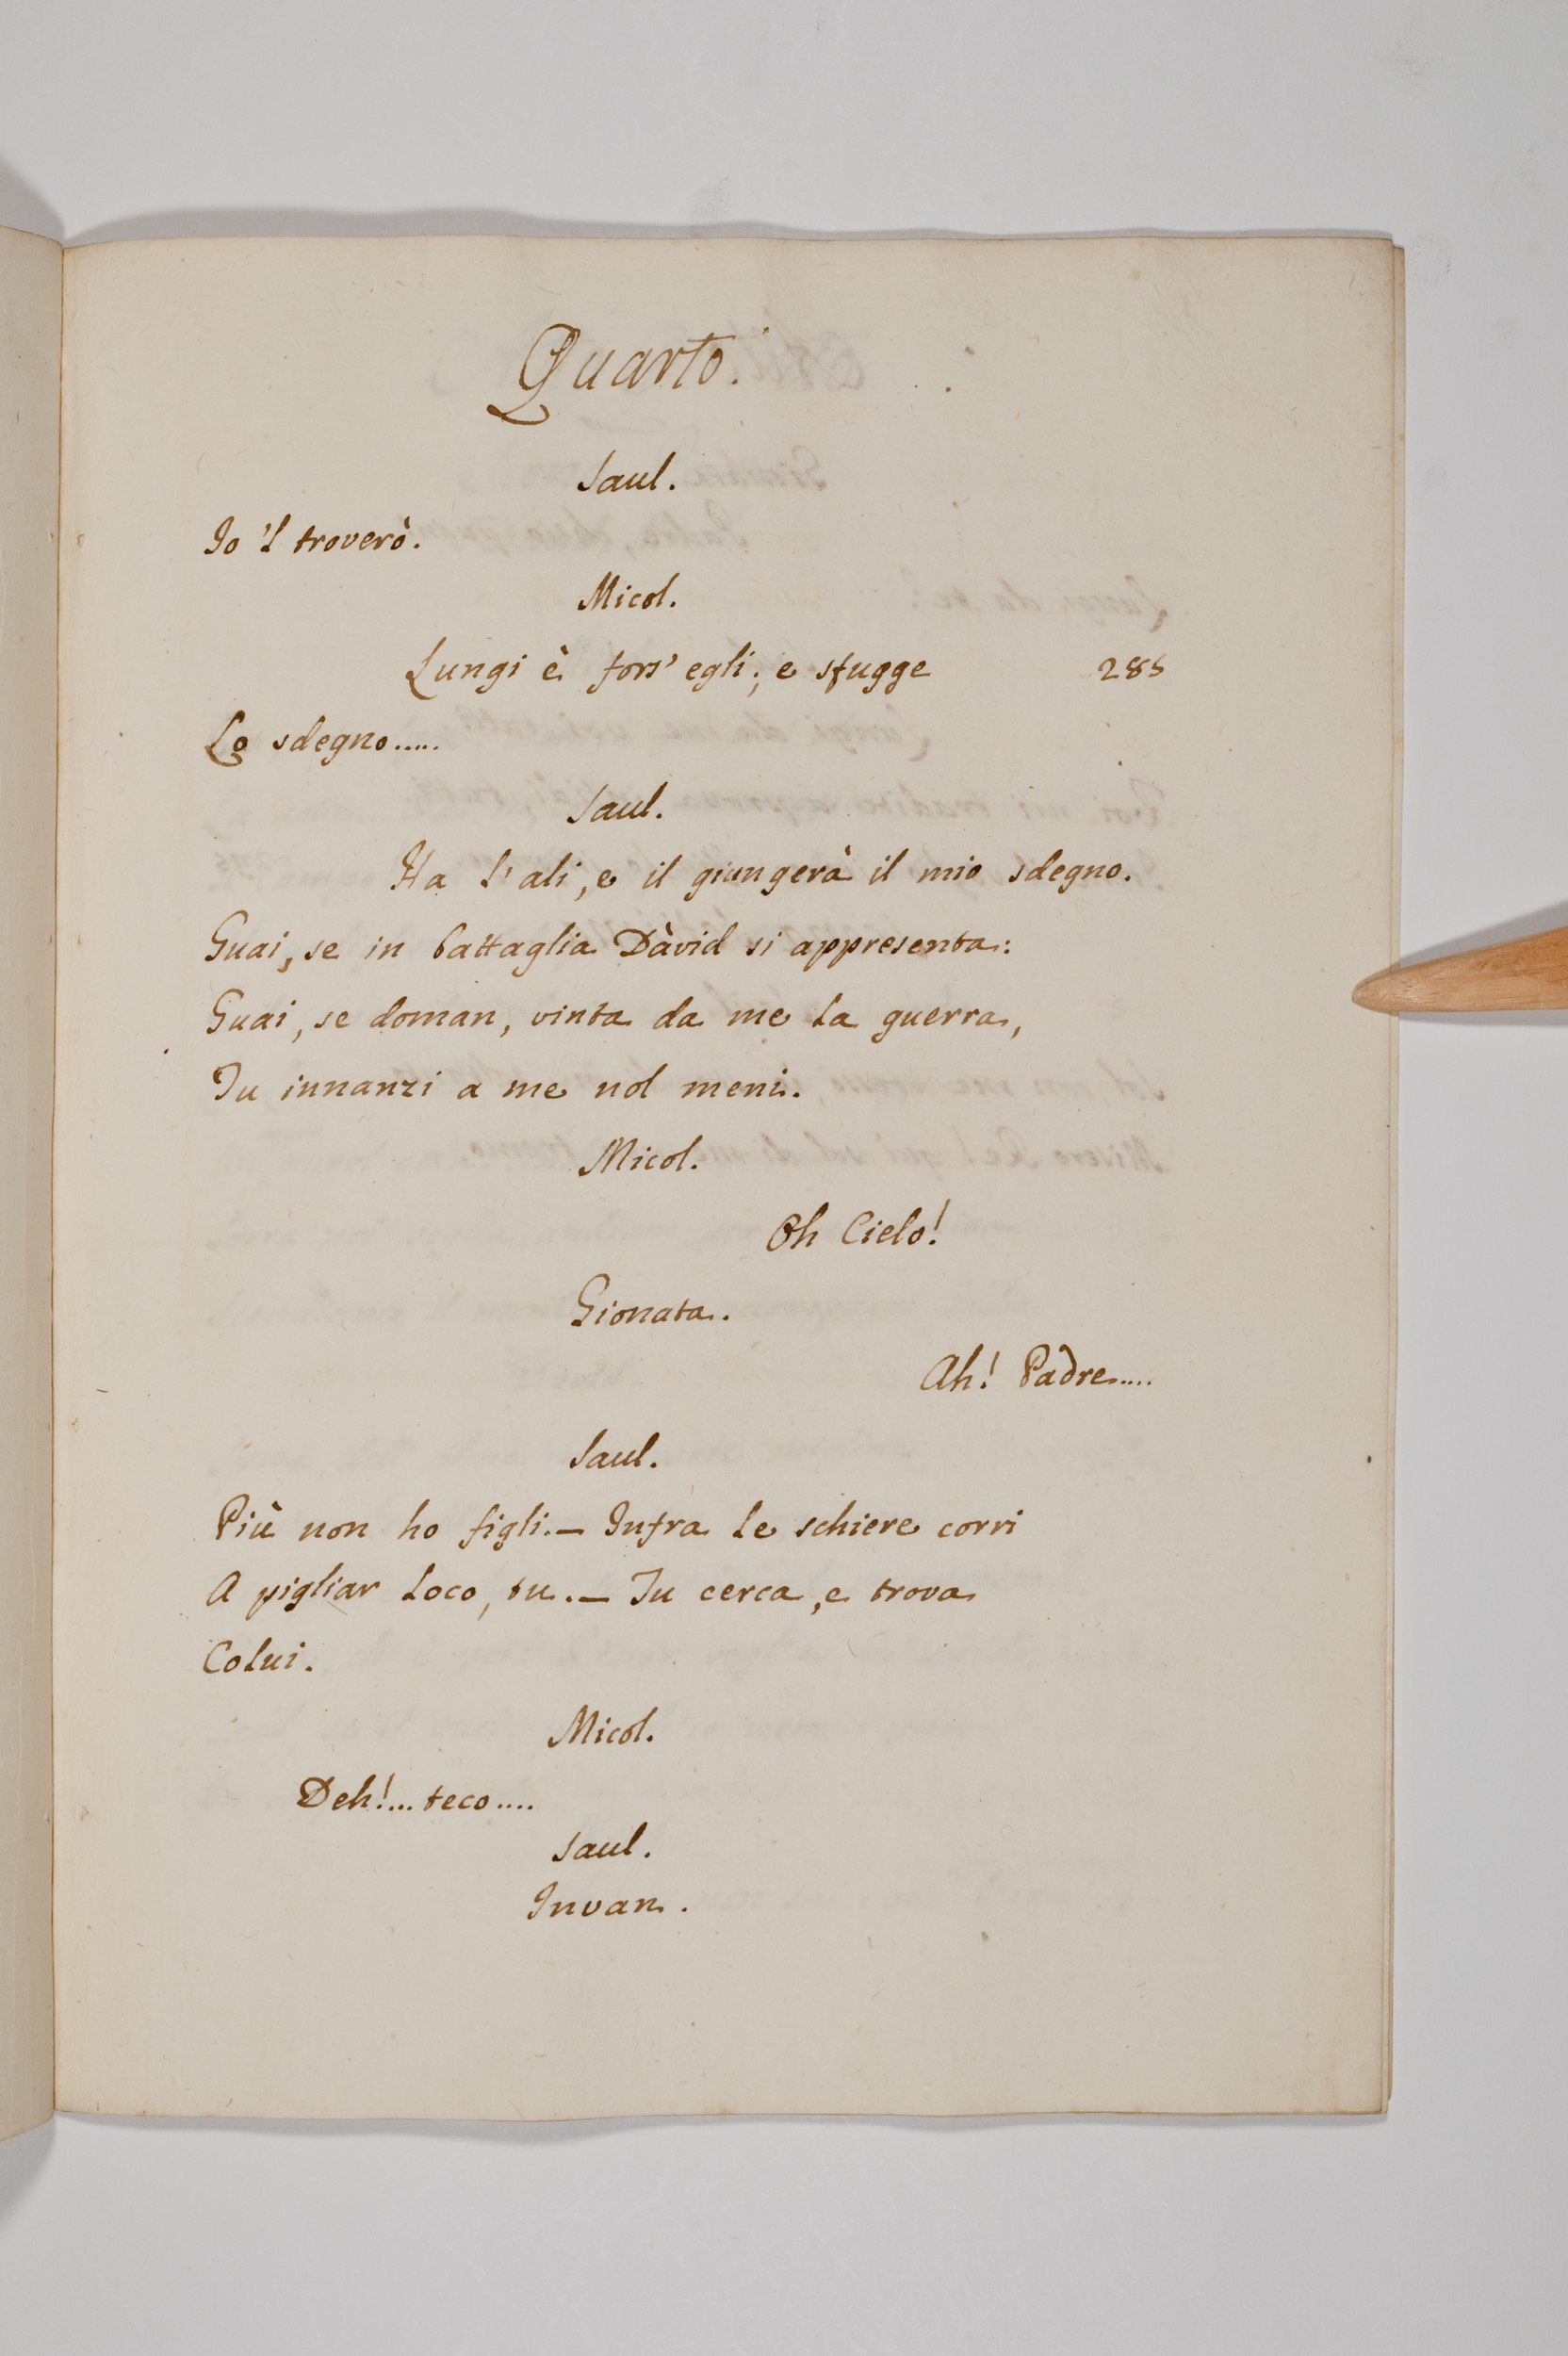 Quarto.
Saul.
Io 'l troverò.
Micol.
Lungi è fors' egli; e sfugge 285
Lo sdegno.....
Saul.
Ha l'ali, e il giungerà il mio sdegno.
Guai, se in battaglia Dàvid si appresenta:
Guai, se doman, vinta da me la guerra,
Tu innanzi a me nol meni.
Micol.
Oh Cielo!
Gionata.
Ah! Padre.....
Saul.
Più non ho figli.— Infra le schiere corri
A pigliar loco, tu.— Tu cerca, e trova
Colui.
Micol.
Deh!... teco....
Saul.
Invan.